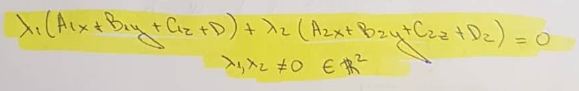 λ₁(A₁x + B₁y + C₁z + D) + λ₂(A₂x + B₂y + C₂z + D₂) = 0
λ₁λ₂ ≠ 0 ∈ ℝ²